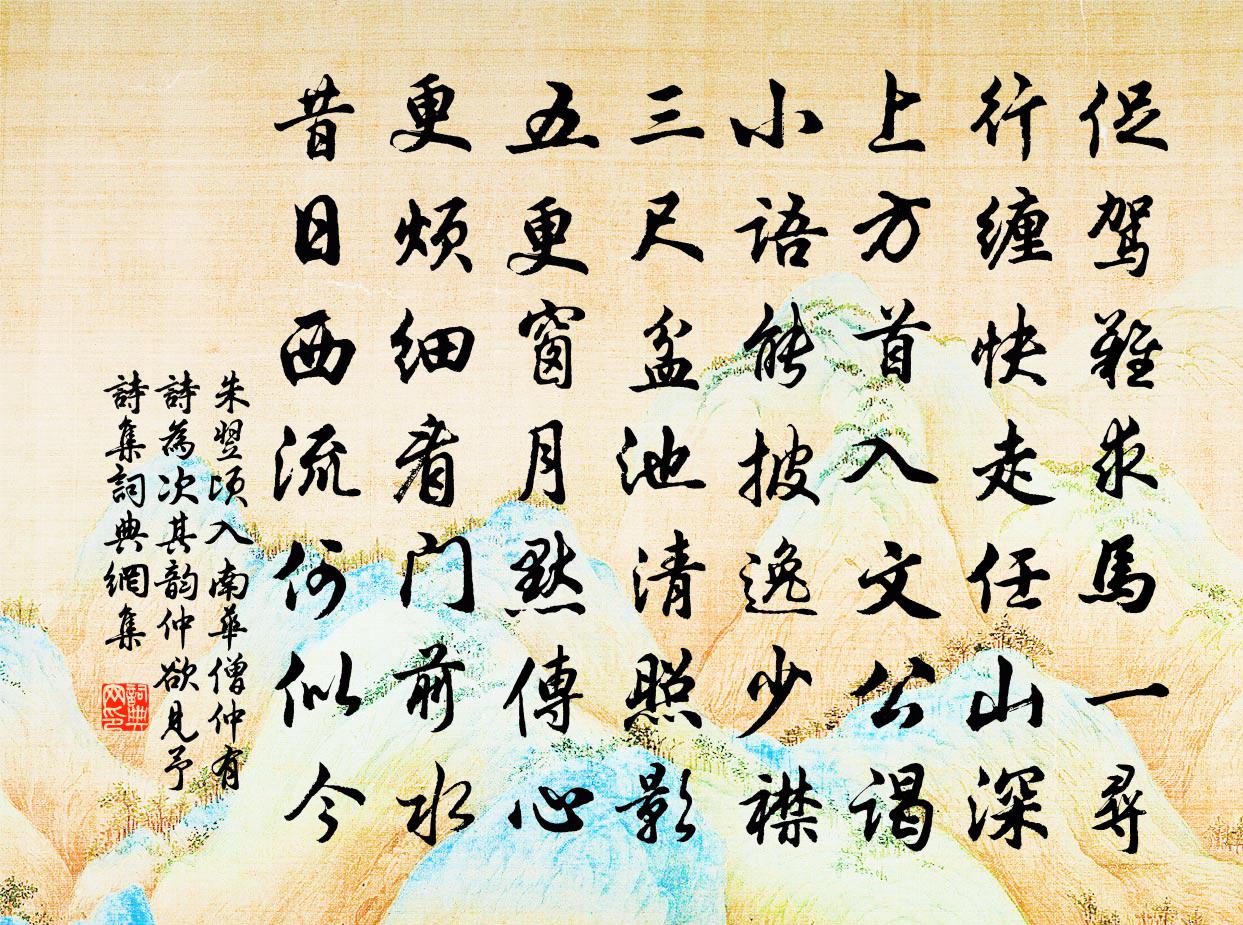 促駕難求馬一尋
行纏快走任山深
上方首入文公謁
小語能披逸少襟
三尺盆池清照影
五更窗月默傳心
更煩細看門前水
昔日西流何似今
朱翌頃入南華僧仲有
詩為次其韵仲欲見予
詩集詞典網集
詞典
网印